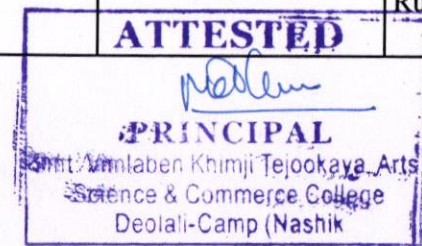 Ru
ATTESTED
PRINCIPAL
Smt. Vimlaben Khimji Tejookaya Arts
Science & Commerce College
Deolali-Camp (Nashik